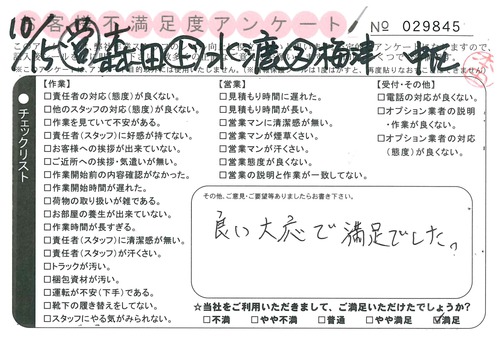 お客様不満足度アンケート
No 029845
10/15 営 森田
梅津
チェックリスト
【作業】
□責任者の対応(態度)が良くない。
□他のスタッフの対応(態度)が良くない。
□作業を見ていて不安がある。
□責任者(スタッフ)に好感が持てない。
□お客様への挨拶が出来ていない。
□ご近所への挨拶・気遣いが無い。
□作業開始前の内容確認がなかった。
□作業開始時間が遅れた。
□荷物の取り扱いが雑である。
□お部屋の養生が出来ていない。
□作業時間が長すぎる。
□責任者(スタッフ)に清潔感が無い。
□責任者(スタッフ)が汗さい。
□トラックが汚い。
□梱包資材が汚い。
□運転が不安(下手)である。
□靴下の履き替えをしてない。
□スタッフにやる気がみられない。
【営業】
□見積もり時間に遅れた。
□見積もり時間が長い。
□営業マンに清潔感が無い。
□営業マンが煙草くさい。
□営業マンが汗くさい。
□営業態度が良くない。
□営業の説明と作業が一致してない。
【受付・その他】
□電話の対応が良くない。
□オプション業者の説明
・作業が良くない。
□オプション業者の対応
(態度)が良くない。
その他、ご意見・ご要望等ありましたらお書き下さい。
良い大応で満足でした。
☆当社をご利用いただきまして、ご満足いただけたでしょうか?
□不満 □やや不満 □普通 □やや満足 ☑満足